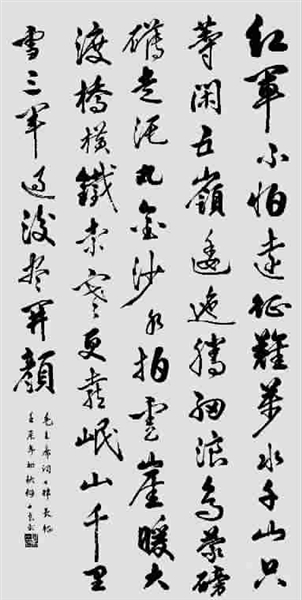 紅軍不怕遠征難萬水千山只
等閑五嶺逶迤騰細浪烏蒙磅
礴走泥丸金沙水拍雲崖暖大
渡橋橫鐵索寒更喜岷山千里
雪三軍過後盡開顏
毛主席詞七律長征
壬辰年初秋